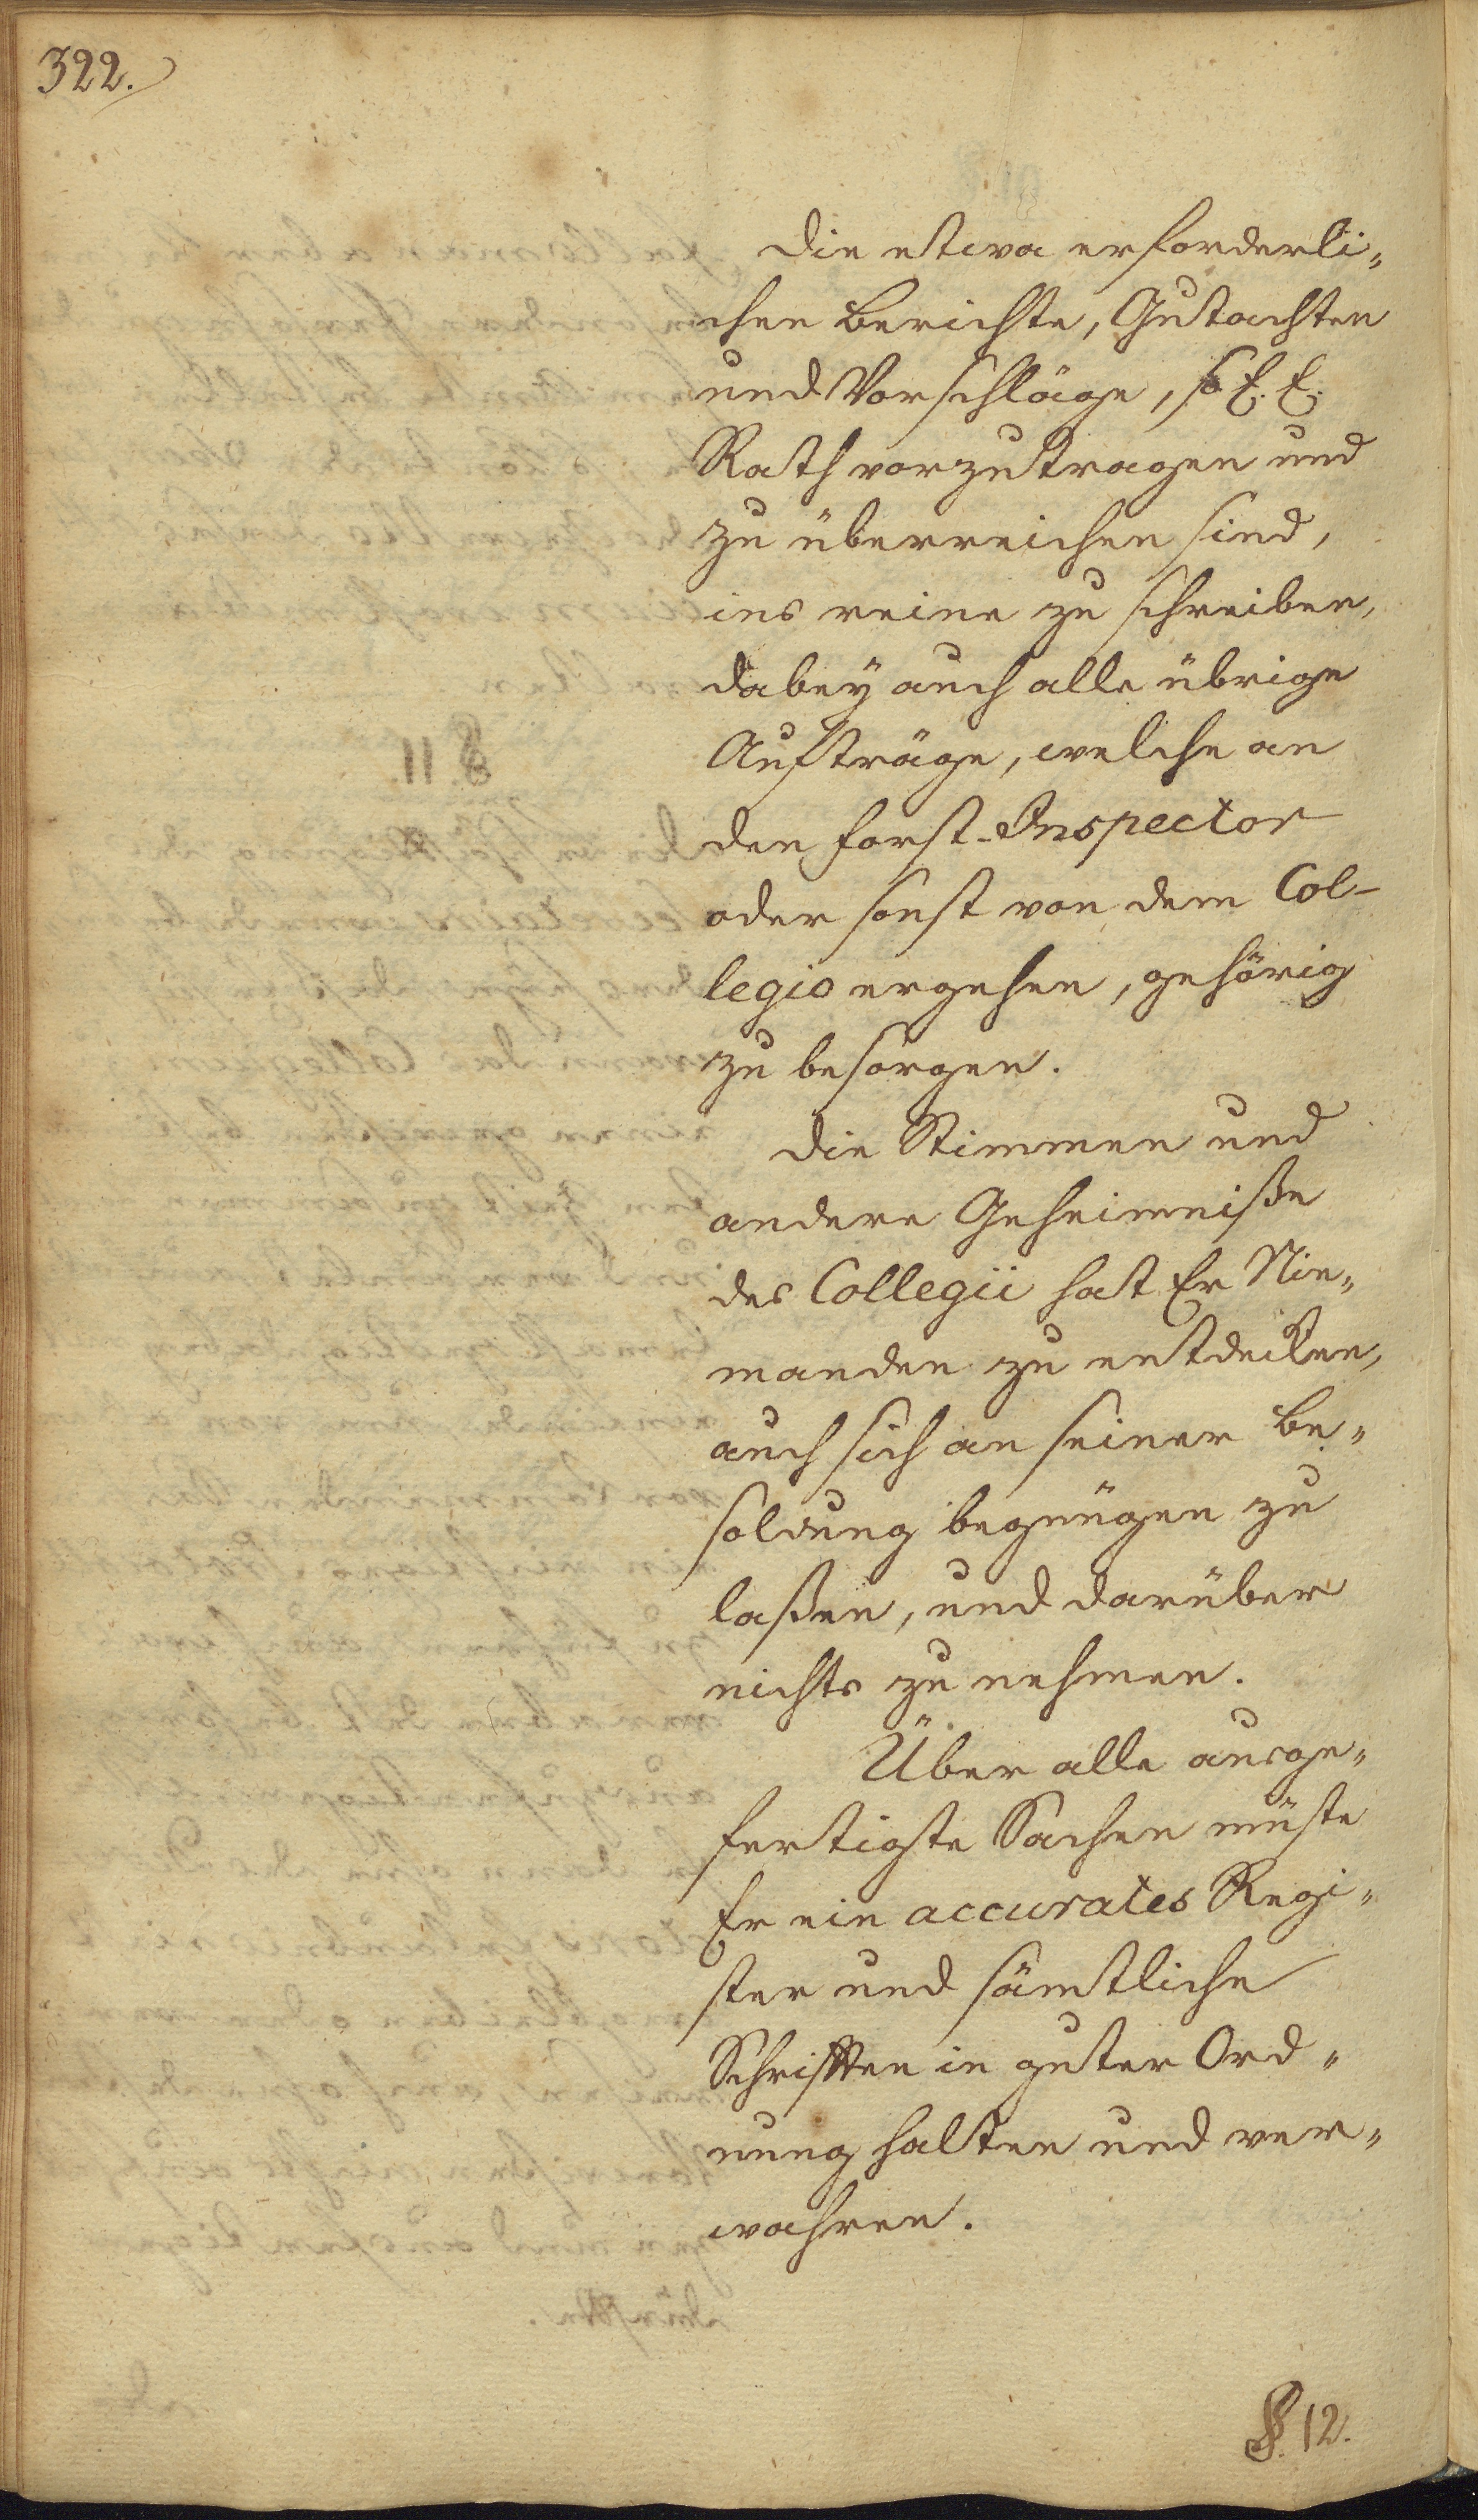 322.
die etwa erforderli„
chen Berichte, Gutachten
und Vorschläge, so E. E.
Rath vorzutragen und
zu überreichen sind,
ins reine zu schreiben,
dabeÿ auch alle übrige
Aufträge, welche an
den Forst-Inspector
oder sonst von dem Col-
legio ergehen, gehörig
zu besorgen.
die Stimmen und
andere Geheimniße
des Collegii hat Er Nie„
manden zu entdecken,
auch sich an seiner Be„
soldung begnügen zu
laßen, und darüber
nichts zu nehmen.
Über alle ausge„
fertigte Sachen müste
Er ein accurates Regi„
ster und sämtliche
Schrifften in guter Ord„
nung halten und ver„
wahren.
§. 12.